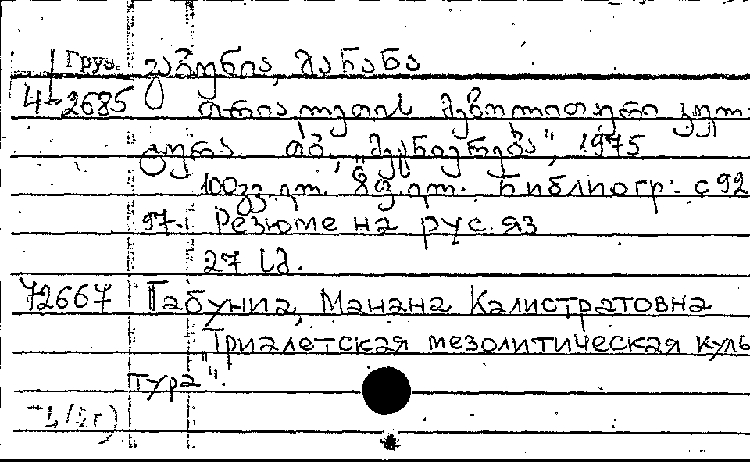 Груз. გაბუნია, მანანა
4-2685 თრიალეთის მეზოლითური კულ-
ტურა თბ., "მეცნიერება", 1975
100 გვ. ილ. 8 ფ. ილ. Библиогр: с 92
97. Резюме на рус. яз
27 სმ.
72667 Габуниа, Манана Калистратовна
"Триалетская мезолитическая куль
тура".